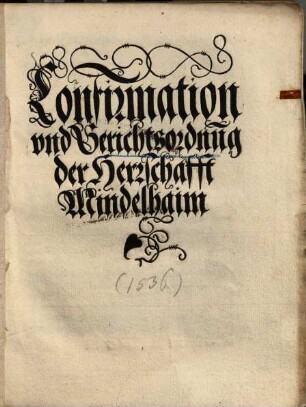 Confirmation
vnd Gerichtsordnūg
der Herrschafft
Mindelhaim
(1536)